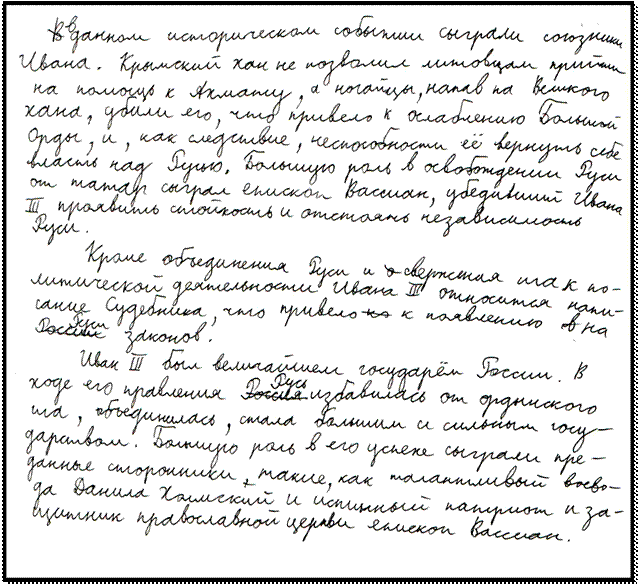 В данном историческом событии сыграли союзники
Ивана. Крымский хан не позволил литовцам прийти
на помощь к Ахмату, а ногайцы, напав на Великого
хана, убили его, что привело к ослаблению Большой
Орды, и, как следствие, неспособности её вернуть себе
власть над Русью. Большую роль в освобождении Руси
от татар сыграл епископ Вассиан, убедивший Ивана
III проявить стойкость и отстоять независимость
Руси.
Кроме объединения Руси и свержения ига к по-
литической деятельности Ивана III относится напи-
сание Судебника, что привело к появлению на
Руси законов.
Иван III был величайшем государём России. В
ходе его правления Русь избавилась от ордынского
ига, объединилась, стала большим и сильным госу-
дарством. Большую роль в его успехе сыграли пре-
данные сторонники, такие, как талантливый воево-
да Данила Холмский и истинный патриот и за-
щитник православной церкви епископ Вассиан.